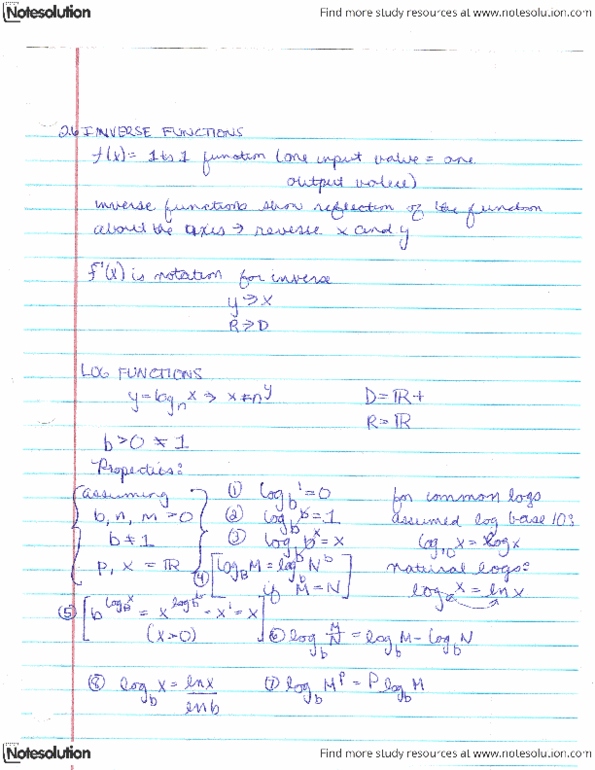 Notesolution
Find more study resources at www.notesolution.com
2.6 INVERSE FUNCTIONS
f(x) = 1 to 1 function (one input value = one
output value)
inverse functions show reflection of the function
about the axis → reverse x and y
f⁻¹(x) is notation for inverse
y → x
R → D
LOG FUNCTIONS
y = log_n x → x = n^y
D = ℝ+
R = ℝ
b > 0 ≠ 1
Properties:
assuming
b, n, m > 0
b ≠ 1
p, x = ℝ
① log_b 1 = 0
② log_b b = 1
③ log_b b^x = x
④ [log_B M = log_b N
if M = N]
for common logs
assumed log base 10:
log_10 x = log x
natural logs:
log_e x = ln x
⑤ [b^(log_B x) = x^(log_b b) = x^1 = x
(x > 0)]
⑥ log_b M/N = log_b M - log_b N
⑧ log_b x = ln x / ln b
⑦ log_b M^P = P log_b M
Notesolution
Find more study resources at www.notesolution.com